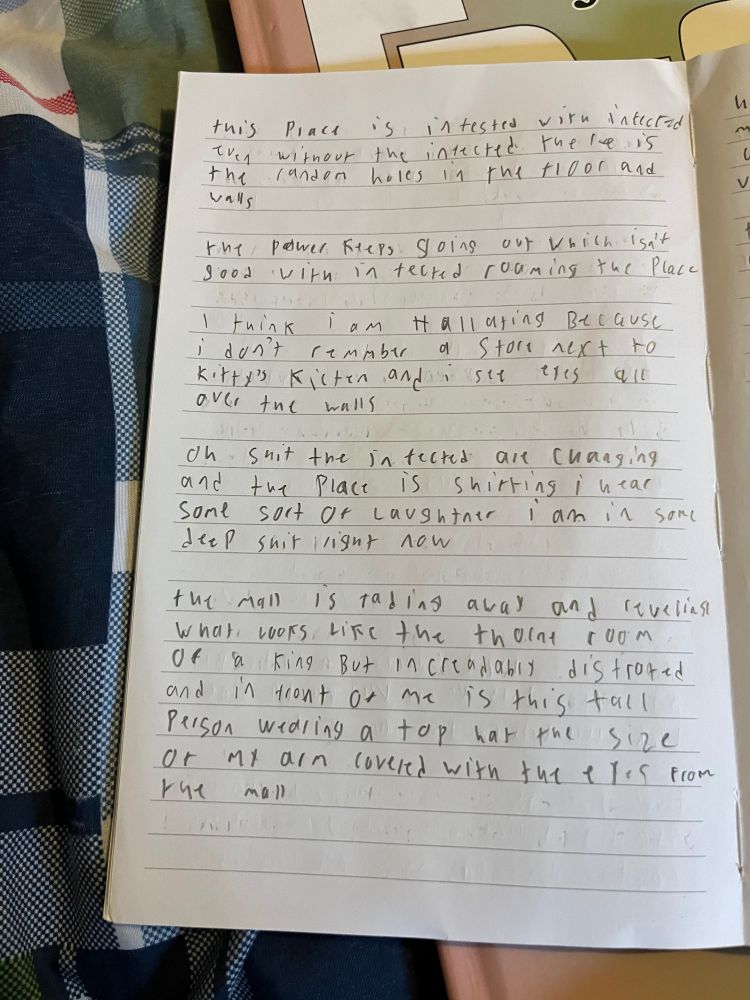 this Place is infested with infected
even without the infected there is
the random holes in the floor and
walls
the power keeps going out which isn't
good with infected roaming the Place
I think i am Hallating Because
i don't remmber a Store next to
Kitty's Kicten and i see eyes all
over the walls
Oh shit the infected are Changing
and the Place is shifting i hear
some sort of Laughtner i am in some
deep shit right now
the mall is fading away and reveling
what Looks Like the thorne room
Of a King But increadably distroted
and in front of me is this tall
Person wearing a top hat the size
Of my arm covered with the eyes From
the mall